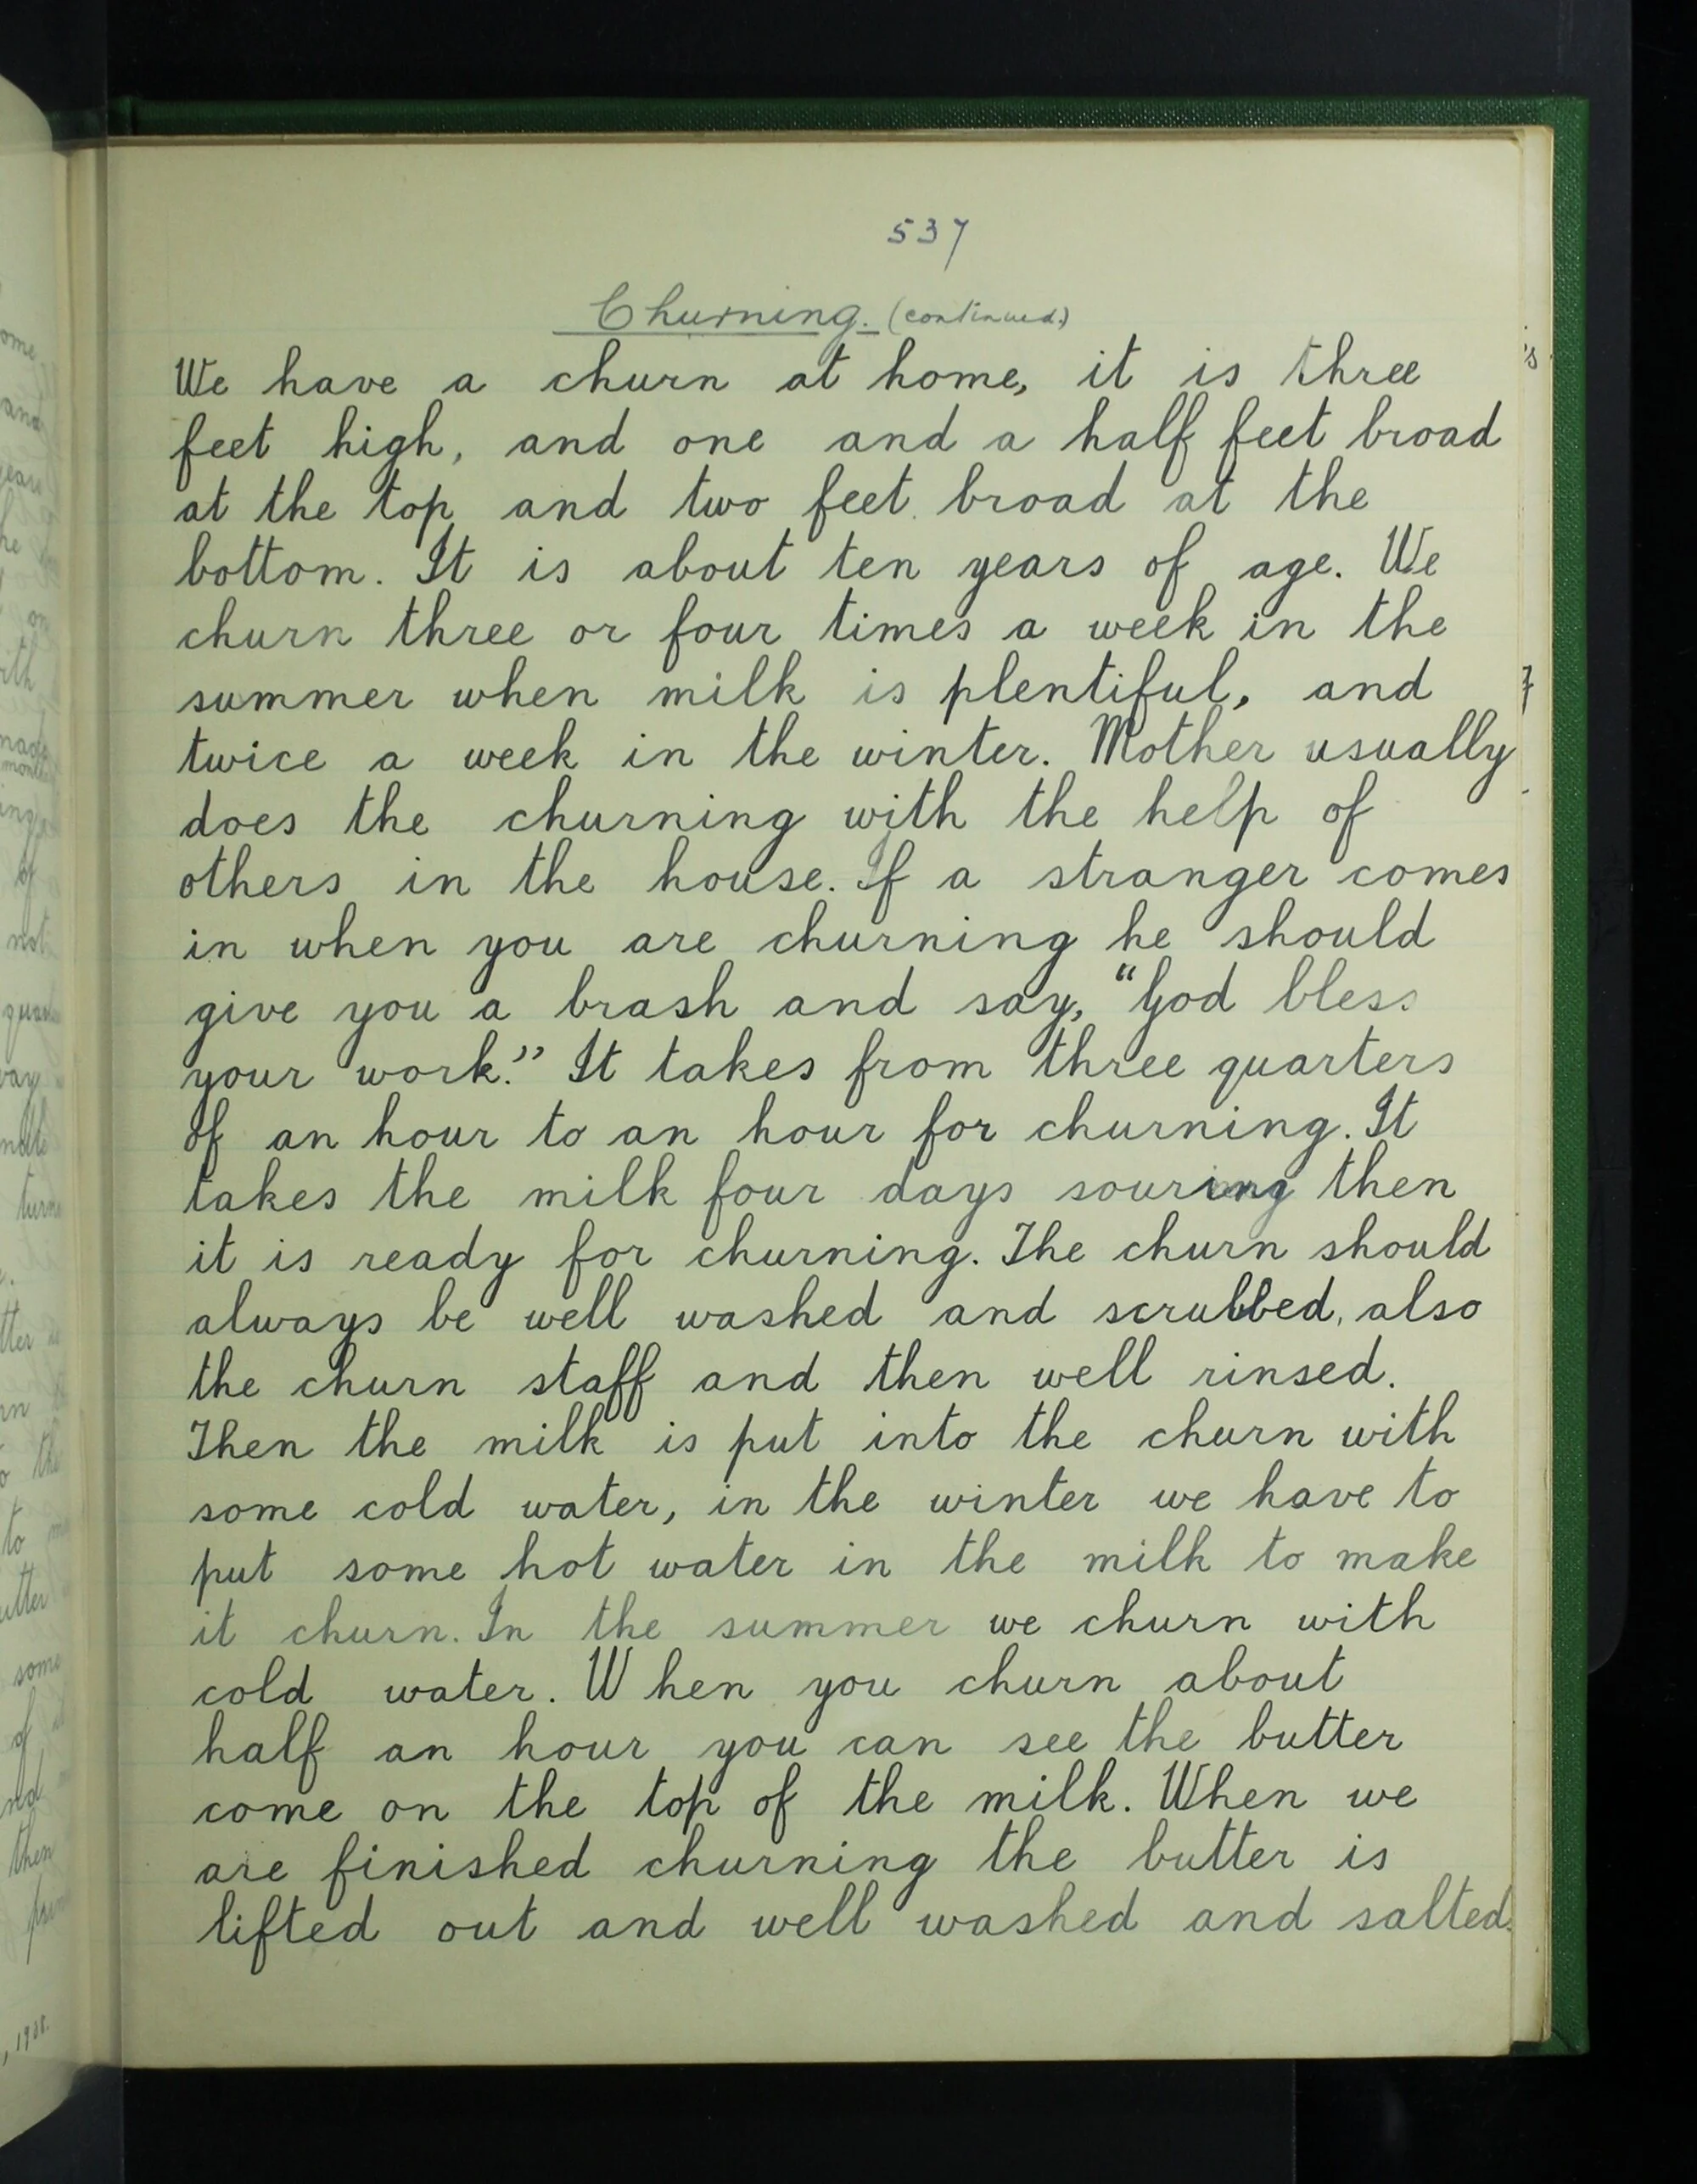 537
Churning. (continued.)
We have a churn at home, it is three
feet high, and one and a half feet broad
at the top and two feet broad at the
bottom. It is about ten years of age. We
churn three or four times a week in the
summer when milk is plentiful, and
twice a week in the winter. Mother usually
does the churning with the help of
others in the house. If a stranger comes
in when you are churning he should
give you a brash and say, "God bless
your work." It takes from three quarters
of an hour to an hour for churning. It
takes the milk four days souring then
it is ready for churning. The churn should
always be well washed and scrubbed, also
the churn staff and then well rinsed.
Then the milk is put into the churn with
some cold water, in the winter we have to
put some hot water in the milk to make
it churn. In the summer we churn with
cold water. When you churn about
half an hour you can see the butter
come on the top of the milk. When we
are finished churning the butter is
lifted out and well washed and salted.